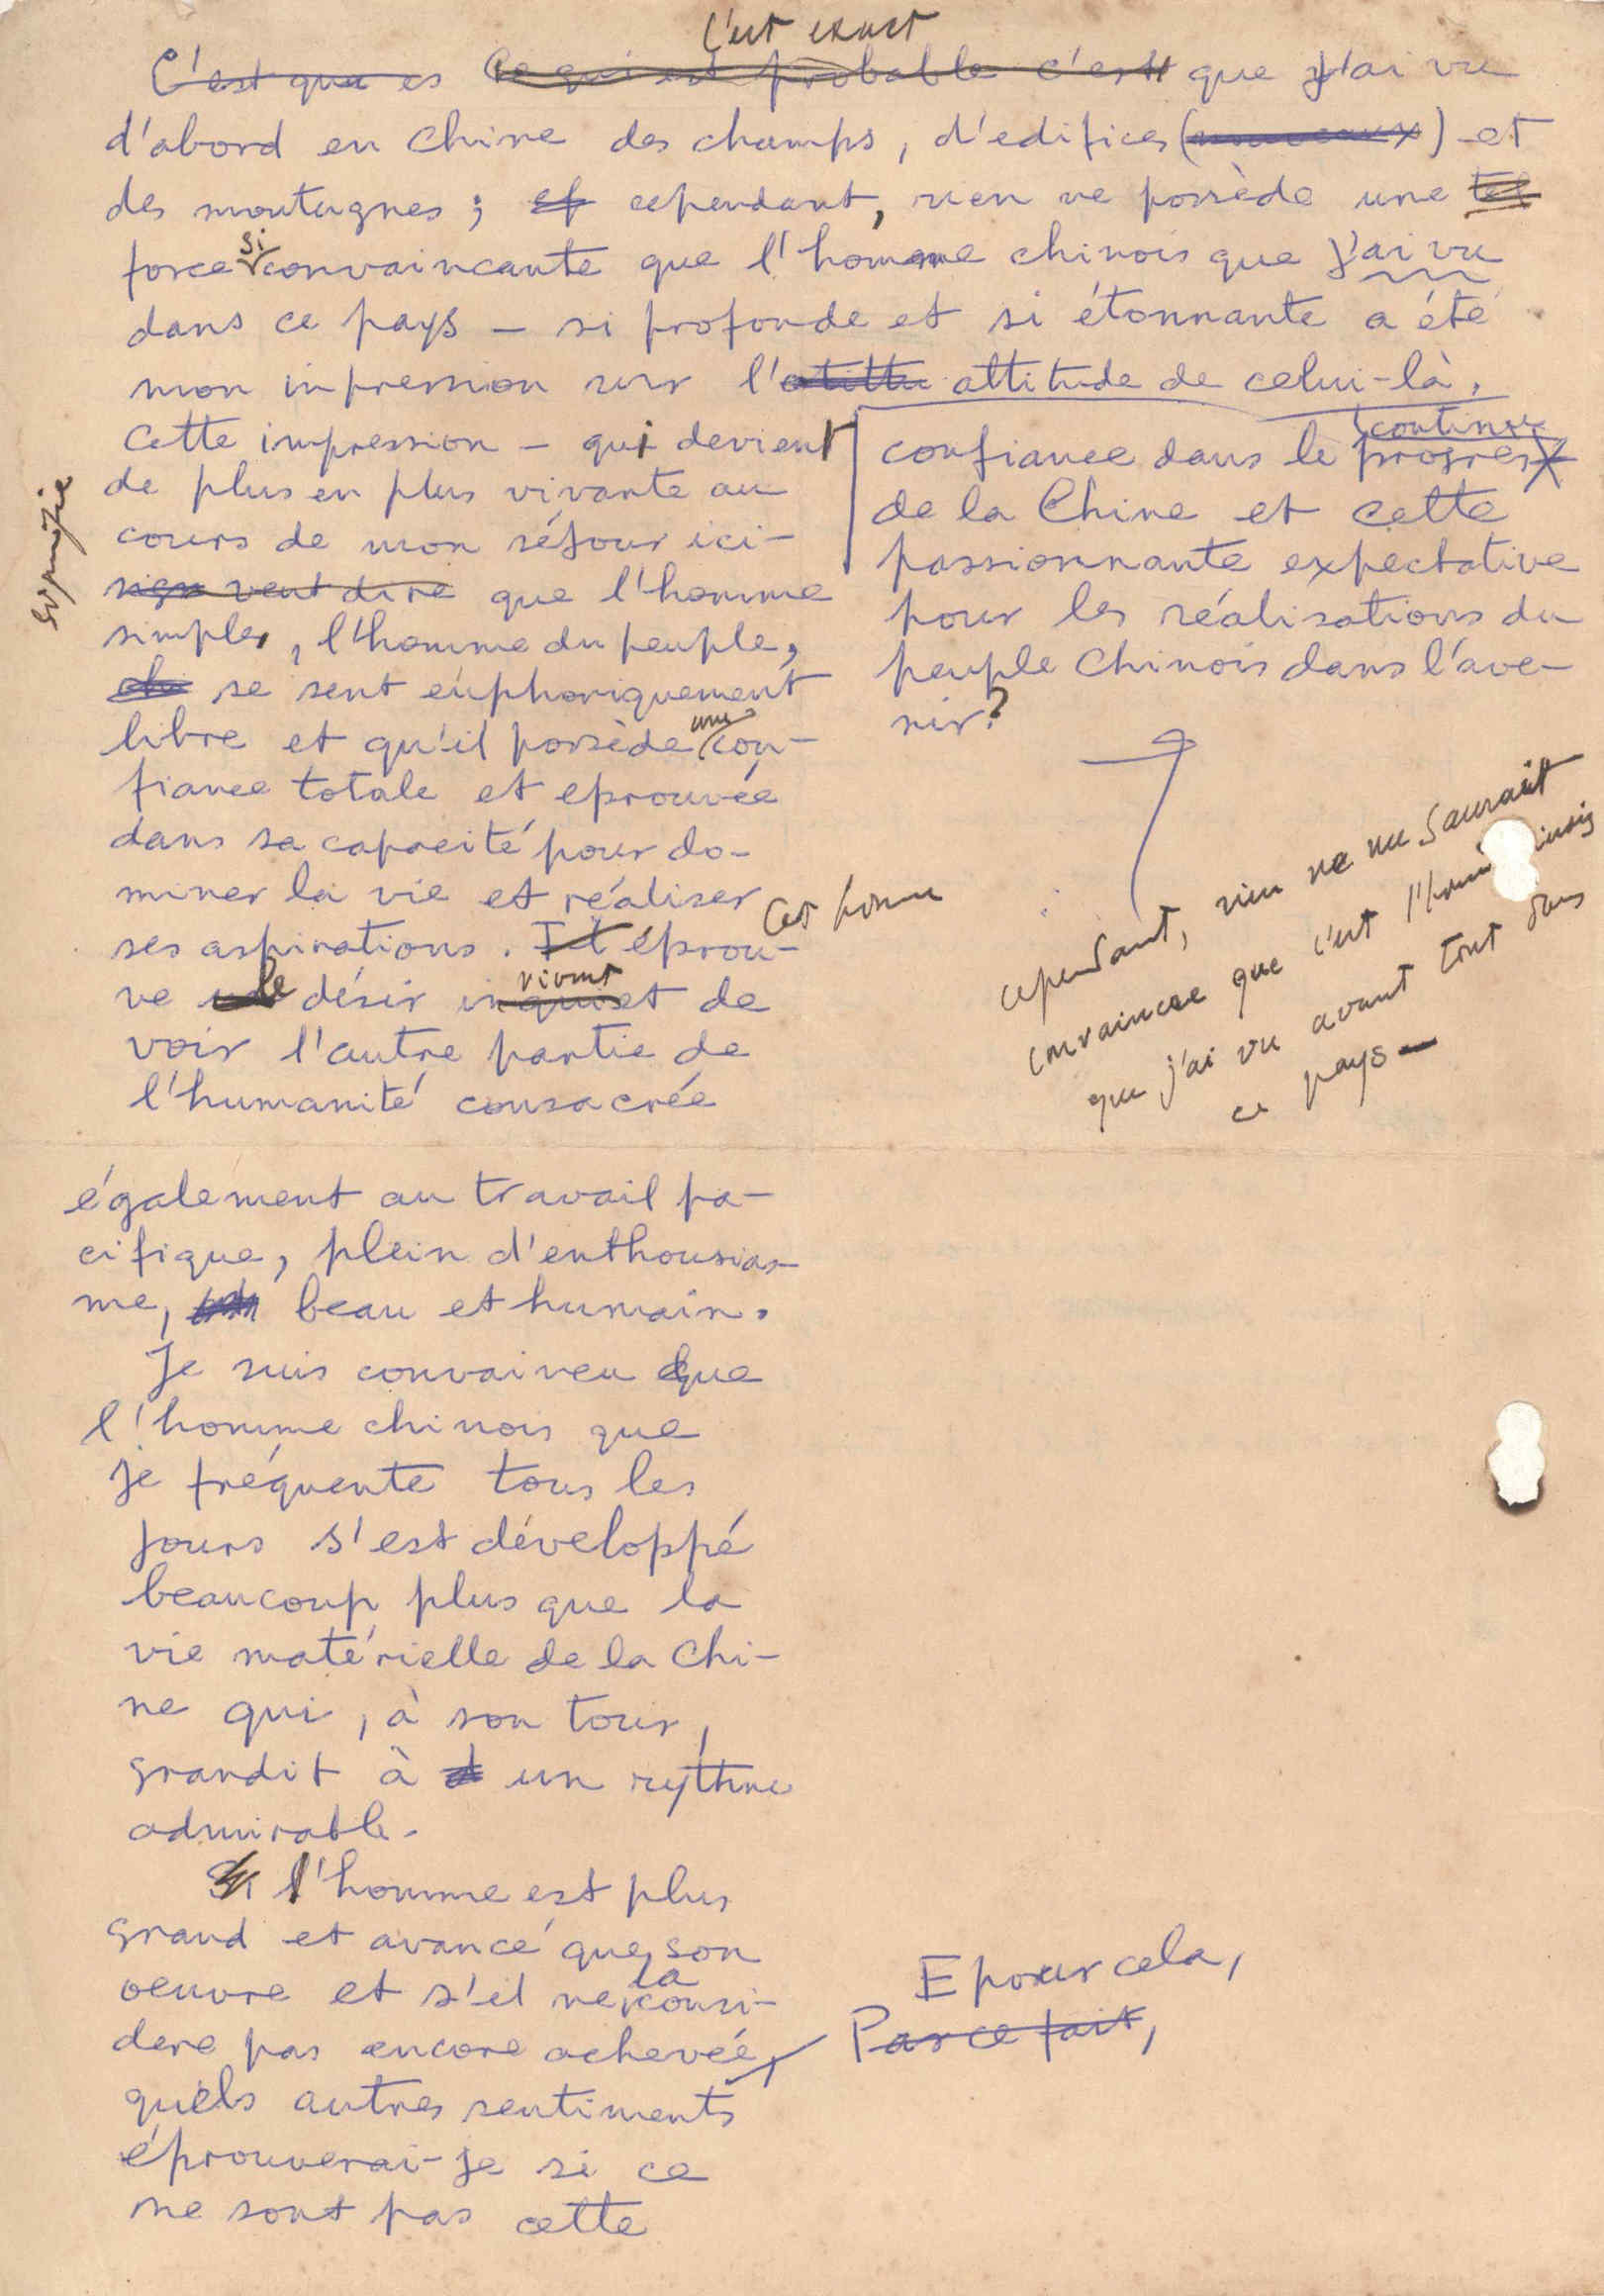 c'est exact
C'est que es Ce qui est probable c'est que j'ai vu
d'abord en Chine des champs, d'edifices () et
des montagnes; et cependant, rien ne possède une tel
force si convaincante que l'homme chinois que j'ai vu
dans ce pays – si profonde et si étonnante a été
mon impression sur l'atittu attitude de celui-là.
Cette impression – qui devient
de plus en plus vivante au
cours de mon séjour ici –
signifie
sign veut dire que l'homme
simple, l'homme du peuple,
se sent euphoriquement
libre et qu'il possède une con-
fiance totale et eprouvée
dans sa capacité pour do-
miner la vie et réaliser
ses aspirations. Il Cet homme éprou-
ve le désir inquiet vivant de
voir l'autre partie de
l'humanité consacrée
également au travail pa-
cifique, plein d'enthousias-
me, beau et humain.
Je suis convaincu que
l'homme chinois que
je fréquente tous les
jours s'est développé
beaucoup plus que la
vie matérielle de la Chi-
ne qui, à son tour,
grandit à un rythme
admirable.
Si l'homme est plus
grand et avancé que son
oeuvre et s'il ne la consi-
dere pas encore achevée,
E pour cela,
Par ce fait,
quels autres sentiments
éprouverai-je si ce
ne sont pas cette
confiance dans le progres continu
de la Chine et cette
passionnante expectative
pour les réalisations du
peuple Chinois dans l'ave-
nir?
cependant, rien ne me saurait
convaincre que c'est l'homme
que j'ai vu avant tout dans
ce pays –